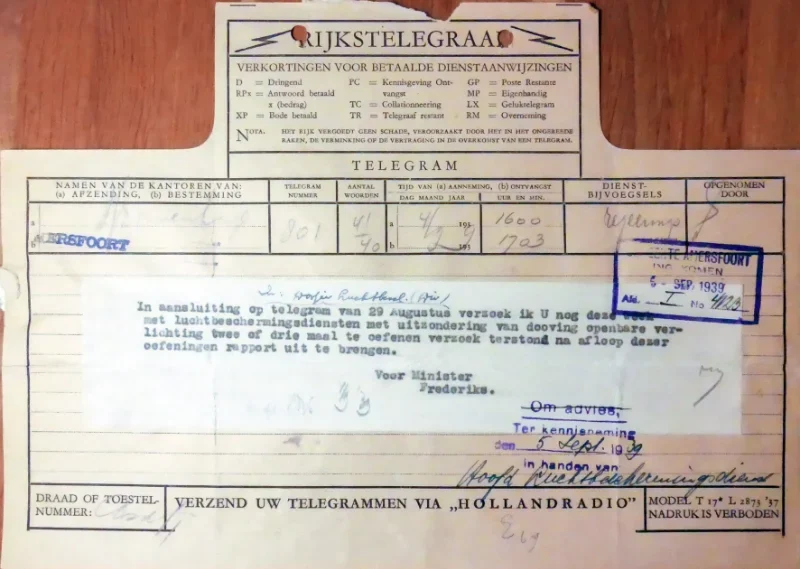 RIJKSTELEGRAAF
VERKORTINGEN VOOR BETAALDE DIENSTAANWIJZINGEN
D = Dringend PC = Kennisgeving Ont- GP = Poste Restante
RPx = Antwoord betaald vangst MP = Eigenhandig
x (bedrag) TC = Collationneering LX = Gelukstelegram
XP = Bode betaald TR = Telegraaf restant RM = Overneming
NOTA. HET RIJK VERGOEDT GEEN SCHADE, VEROORZAAKT DOOR HET IN HET ONGEREEDE
RAKEN, DE VERMINKING OF DE VERTRAGING IN DE OVERKOMST VAN EEN TELEGRAM.
TELEGRAM
NAMEN VAN DE KANTOREN VAN: TELEGRAM AANTAL TIJD VAN (a) AANNEMING, (b) ONTVANGST DIENST- OPGENOMEN
(a) AFZENDING, (b) BESTEMMING NUMMER WOORDEN DAG MAAND JAAR UUR EN MIN. BIJVOEGSELS DOOR
a 801 41 a 4/9 193 1600
AMERSFOORT 40 b 193 1703
GEMEENTE AMERSFOORT
INGEKOMEN
5 - SEP. 1939
Afd. I No 4123
In aansluiting op telegram van 29 Augustus verzoek ik U nog deze week
met luchtbeschermingsdiensten met uitzondering van dooving openbare ver-
lichting twee of drie maal te oefenen verzoek terstond na afloop dezer
oefeningen rapport uit te brengen.
Voor Minister
Frederiks.
Om advies,
Ter kennisneming
den 5 Sept. 1939
in handen van
Hoofd Luchtbeschermingsdienst
DRAAD OF TOESTEL-
NUMMER:
VERZEND UW TELEGRAMMEN VIA „HOLLANDRADIO”
MODEL T 17* L 2873 '37
NADRUK IS VERBODEN